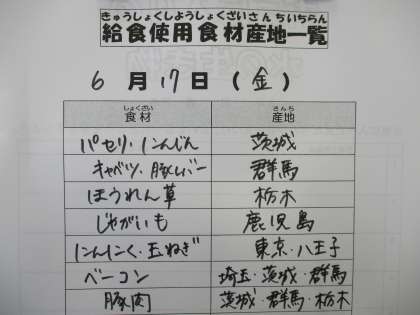 きゅうしょくしようしょくざいさんちいちらん
給食使用食材産地一覧
6月17日(金)
しょくざい さんち
食材 産地
パセリ・にんじん 茨城
キャベツ・豚レバー 群馬
ほうれん草 栃木
じゃがいも 鹿児島
にんにく・玉ねぎ 東京・八王子
ベーコン 埼玉・茨城・群馬
豚肉 茨城・群馬・栃木